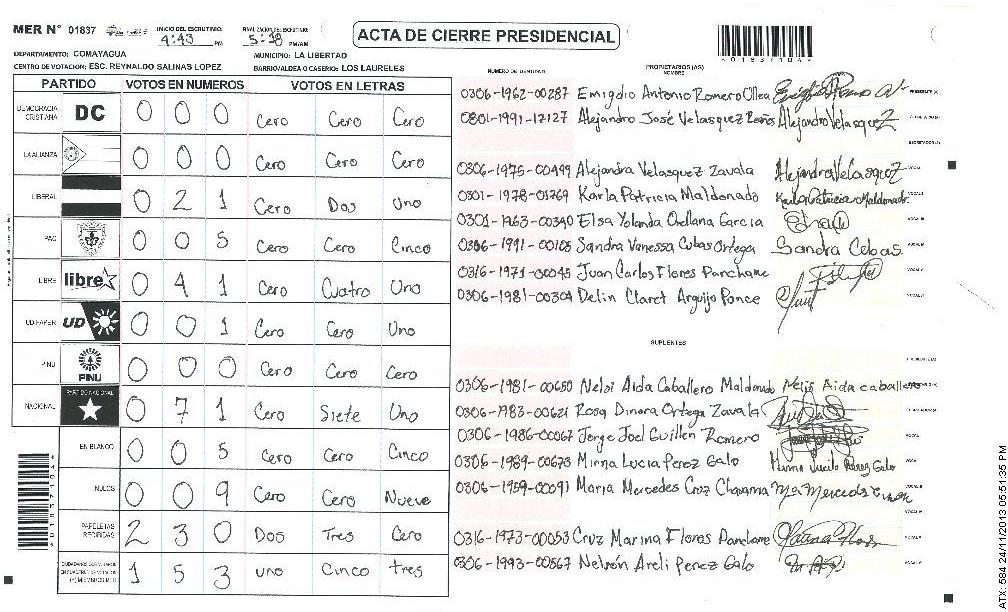 MER N° 01837 INICIO DEL ESCRUTINIO: 4:43 PM FINALIZACION DEL ESCRUTINIO: 5:38 PM/AM ACTA DE CIERRE PRESIDENCIAL
DEPARTAMENTO: COMAYAGUA MUNICIPIO: LA LIBERTAD
CENTRO DE VOTACION: ESC. REYNALDO SALINAS LOPEZ BARRIO/ALDEA O CASERIO: LOS LAURELES
PARTIDO VOTOS EN NUMEROS VOTOS EN LETRAS
DEMOCRACIA CRISTIANA DC 0 0 0 Cero Cero Cero
LA ALIANZA 0 0 0 Cero Cero Cero
LIBERAL 0 2 1 Cero Dos Uno
PAC 0 0 5 Cero Cero Cinco
LIBRE libre 0 4 1 Cero Cuatro Uno
UD FAPER UD 0 0 1 Cero Cero Uno
PINU PINU 0 0 0 Cero Cero Cero
NACIONAL PARTIDO NACIONAL 0 7 1 Cero Siete Uno
EN BLANCO 0 0 5 Cero Cero Cinco
NULOS 0 0 9 Cero Cero Nueve
PAPELETAS RECIBIDAS 2 3 0 Dos Tres Cero
1 5 3 uno Cinco tres
NUMERO DE IDENTIDAD PROPIETARIOS (AS) NOMBRE
0306-1962-00287 Emigdio Antonio Romero Ollea
0801-1991-12127 Alejandro José Velasquez Alejandro Velasquez
0306-1975-00499 Alejandra Velasquez Zavala Alejandra Velasquez
0301-1978-01769 Karla Patricia Maldonado Karla Patricia Maldonado
0301-1963-00390 Elsa Yolanda Orellana Garcia
0306-1991-00105 Sandra Vanessa Cubas Ortega Sandra Cubas
0316-1971-00045 Juan Carlos Flores Panchame
0306-1981-00304 Delin Claret Arguijo Ponce
SUPLENTES
0306-1981-00650 Nelsi Aida Caballero Maldonado Nelsi Aida caballero
0306-1983-00621 Rosa Dinora Ortega Zavala
0306-1986-00067 Jorge Joel Guillen Romero
0306-1989-00673 Mirna Lucia Perez Galo Mirna Lucila Perez Galo
0306-1959-00091 Maria Mercedes Cruz
0316-1973-00053 Cruz Marina Flores Panchame
0306-1993-00567 Areli Perez Galo
ATX: 584 24/11/2013 05:51:35 PM